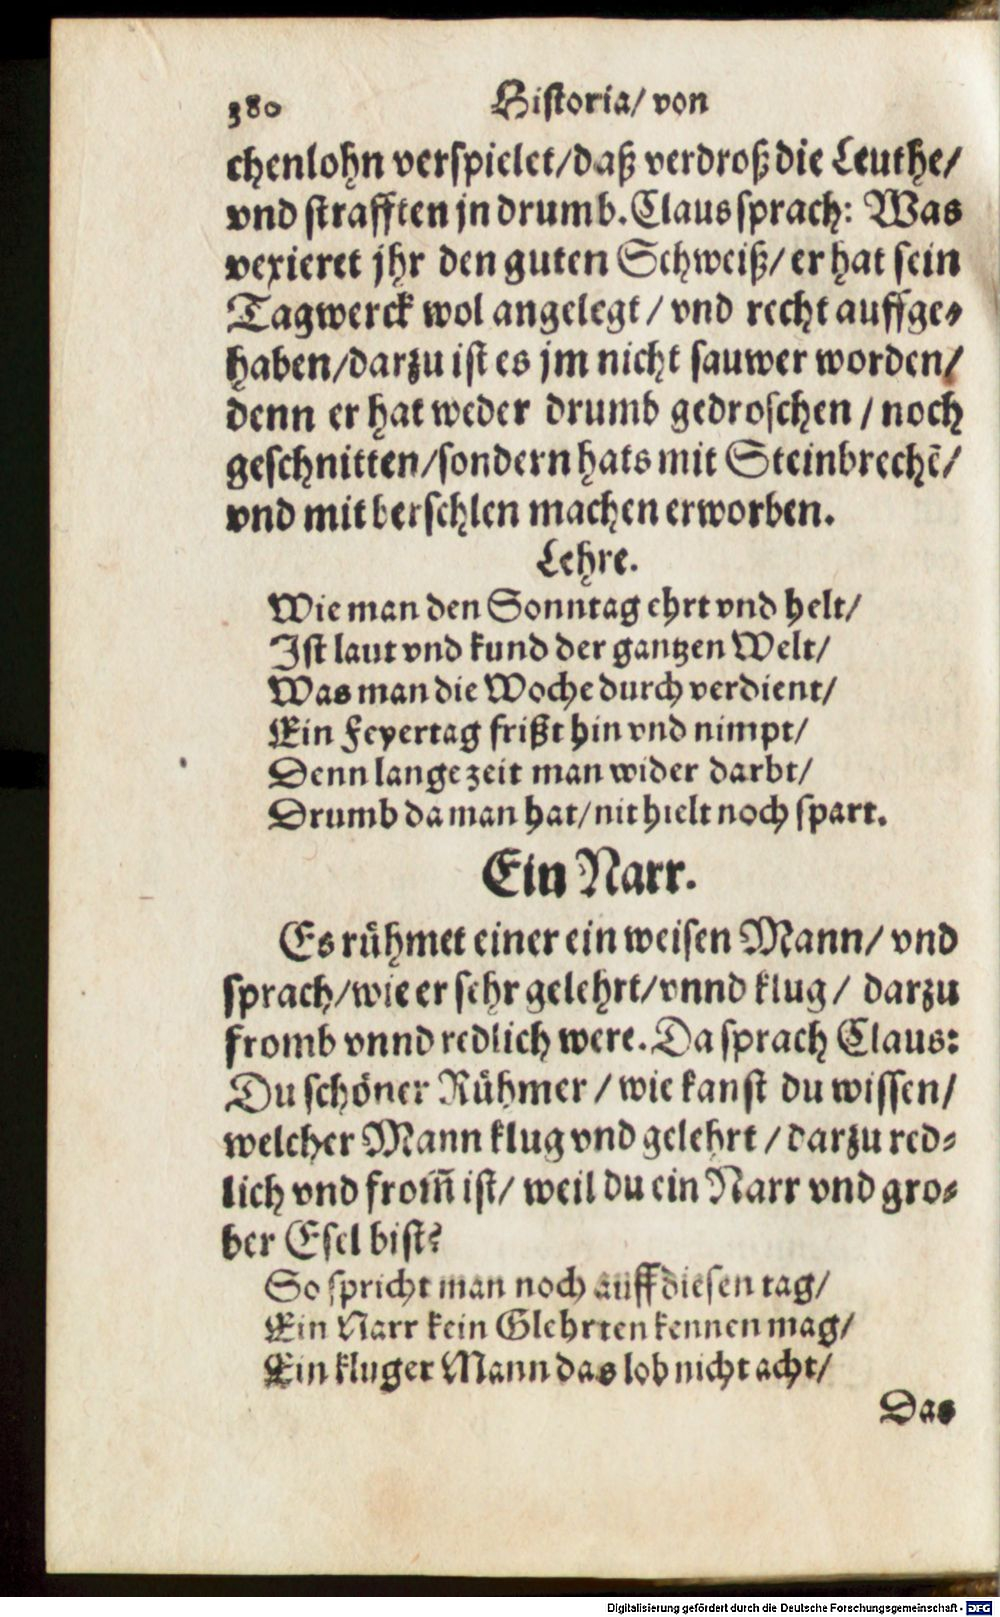 380 Historia/ von
chenlohn verspielet/daß verdroß die Leuthe/
vnd strafften jn drumb. Claus sprach: Was
vexieret jhr den guten Schweiß/ er hat sein
Tagwerck wol angelegt / vnd recht auffge-
haben/darzu ist es jm nicht sauwer worden/
denn er hat weder drumb gedroschen / noch
geschnitten/sondern hats mit Steinbrechẽ/
vnd mit berschlen machen erworben.
Lehre.
Wie man den Sonntag ehrt vnd helt/
Ist laut vnd kund der gantzen Welt/
Was man die Woche durch verdient/
Ein Feyertag frißt hin vnd nimpt/
Denn lange zeit man wider darbt/
Drumb da man hat/ nit hielt noch spart.
Ein Narr.
Es rühmet einer ein weisen Mann/ vnd
sprach/wie er sehr gelehrt/vnnd klug/ darzu
fromb vnnd redlich were. Da sprach Claus:
Du schöner Rühmer / wie kanst du wissen/
welcher Mann klug vnd gelehrt / darzu red-
lich vnd from̃ ist/ weil du ein Narr vnd gro-
ber Esel bist?
So spricht man noch auff diesen tag/
Ein Narr kein Glehrten kennen mag/
Ein kluger Mann das lob nicht acht/
Das
Digitalisierung gefördert durch die Deutsche Forschungsgemeinschaft - DFG